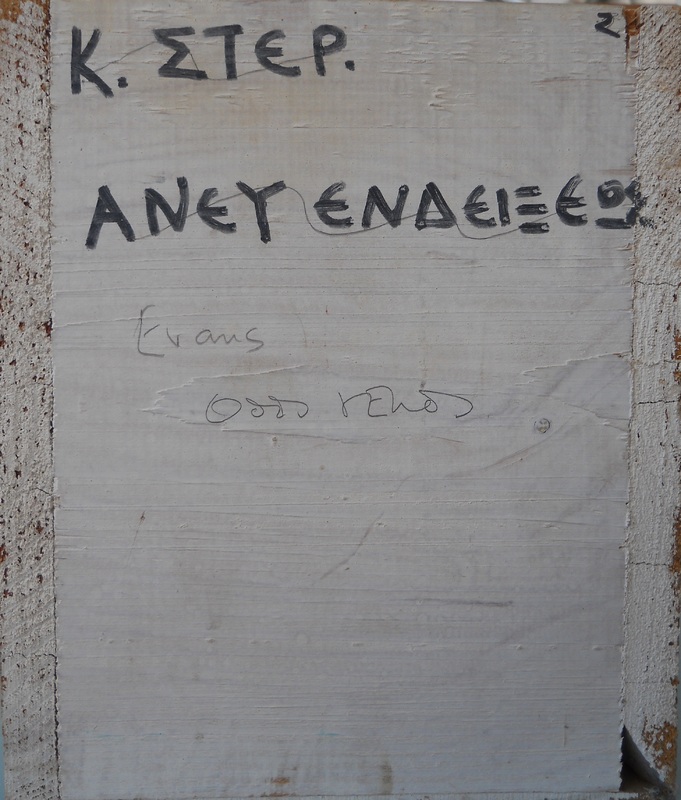 2
Κ. ΣΤΕΡ.
ΑΝΕΥ ΕΝΔΕΙΞΕΩΣ
Evans